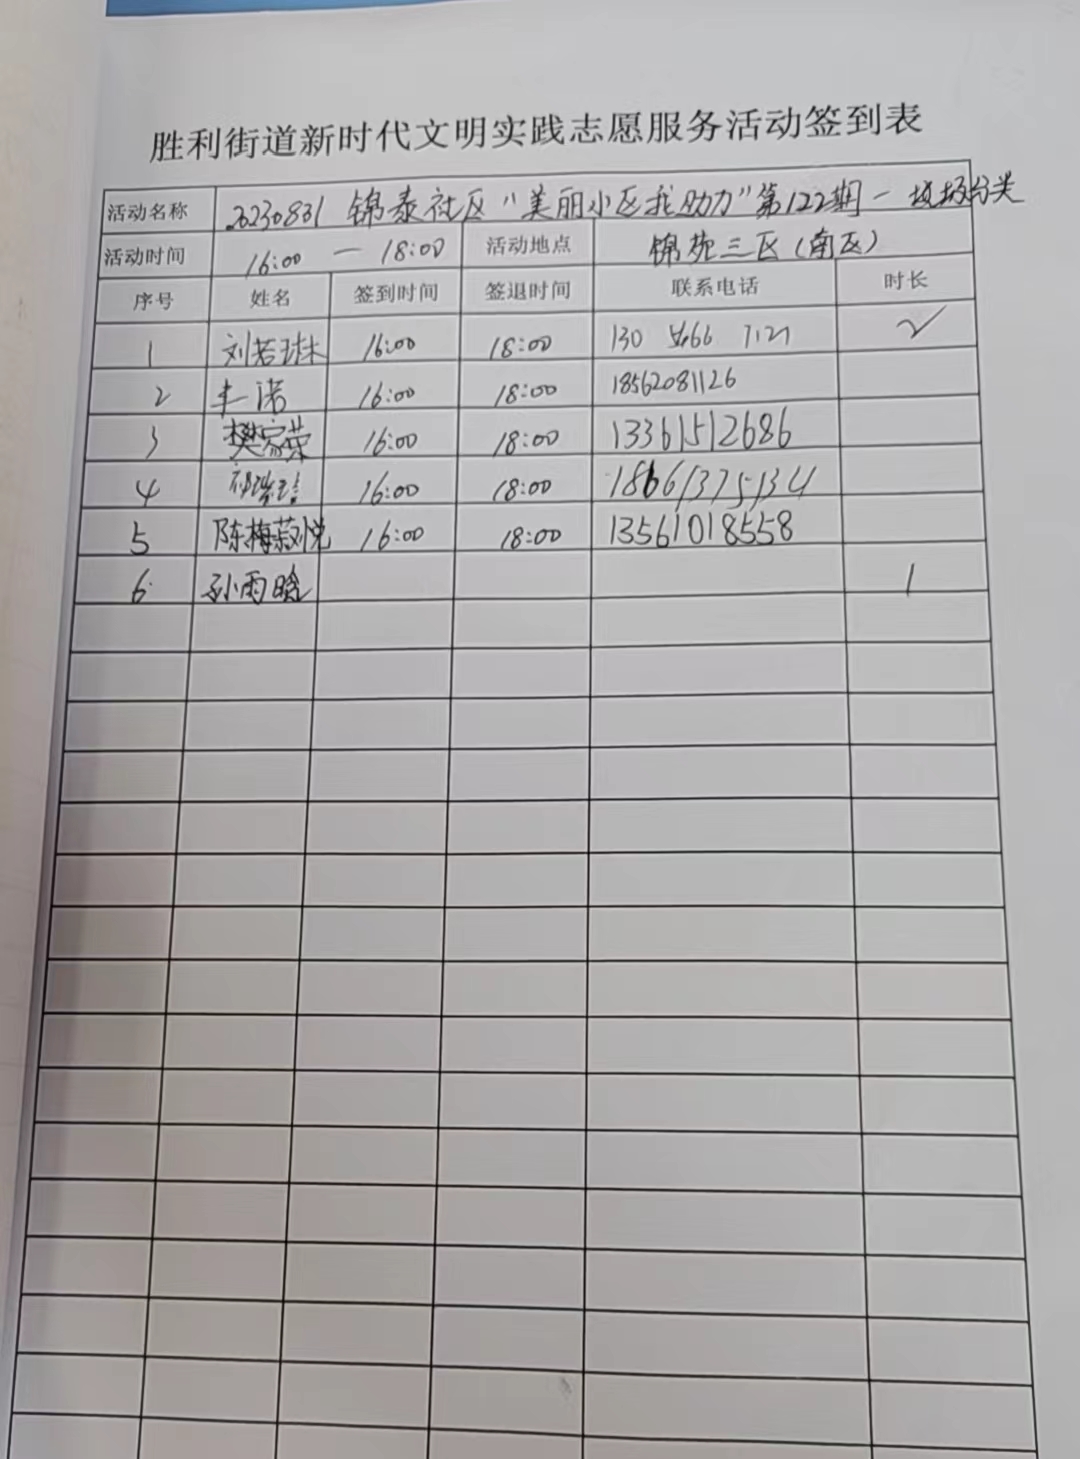 胜利街道新时代文明实践志愿服务活动签到表
活动名称 20230831 锦泰社区“美丽小区我助力”第122期一垃圾分类
活动时间 16:00 — 18:00 活动地点 锦苑三区(南区)
序号 姓名 签到时间 签退时间 联系电话 时长
1 刘若琳 16:00 18:00 130 5466 ✓
2 丰诺 16:00 18:00 18562081126
3 樊家荣 16:00 18:00 13361512686
4 16:00 18:00 18661375134
5 陈梅荪刘悦 16:00 18:00 13561018558
6 孙雨晗 1